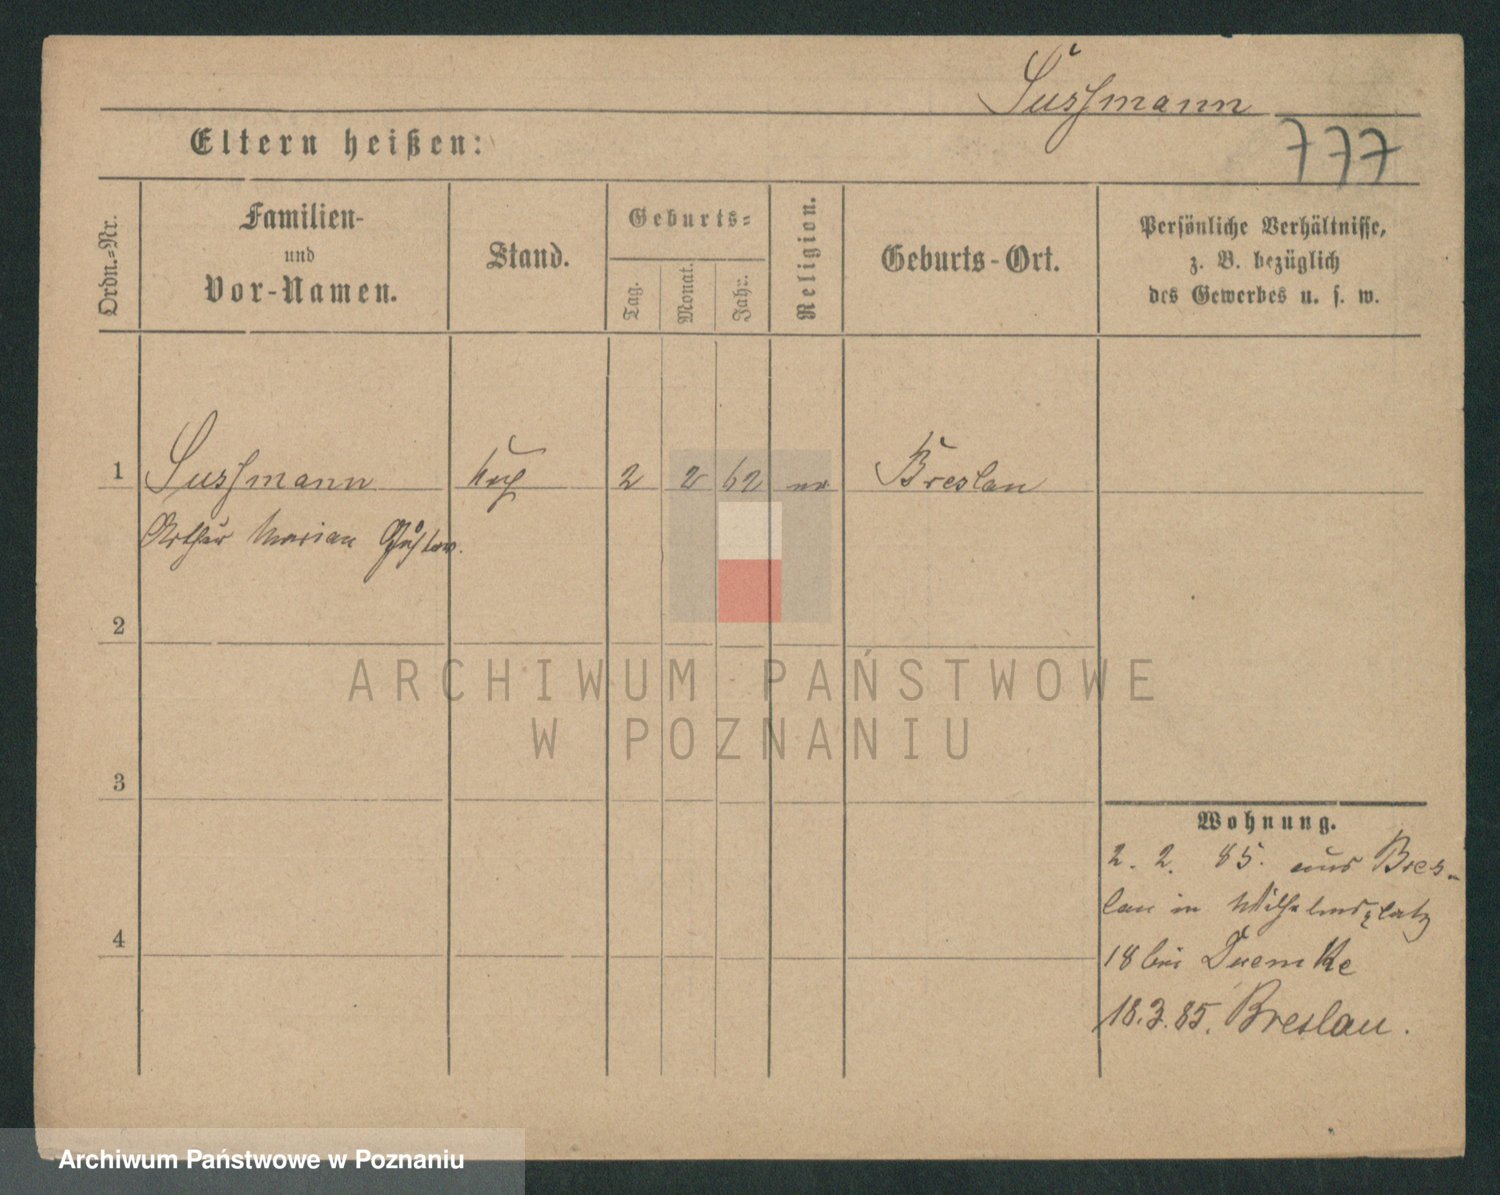 Sussmann
777
Eltern heißen:
Ordn.-Nr.
Familien-
und
Vor-Namen.
Stand.
Geburts-
Tag.
Monat.
Jahr.
Religion.
Geburts-Ort.
Persönliche Verhältnisse,
z. B. bezüglich
des Gewerbes u. s. w.
1 Sussmann 2 2 62 Breslau
Arthur Marian Gustav.
2
ARCHIWUM PAŃSTWOWE
W POZNANIU
3
Wohnung.
2. 2. 85. aus Bres-
lau in Wilhelmsplatz
4
18 bei Duemke
18.3.85. Breslau.
Archiwum Państwowe w Poznaniu